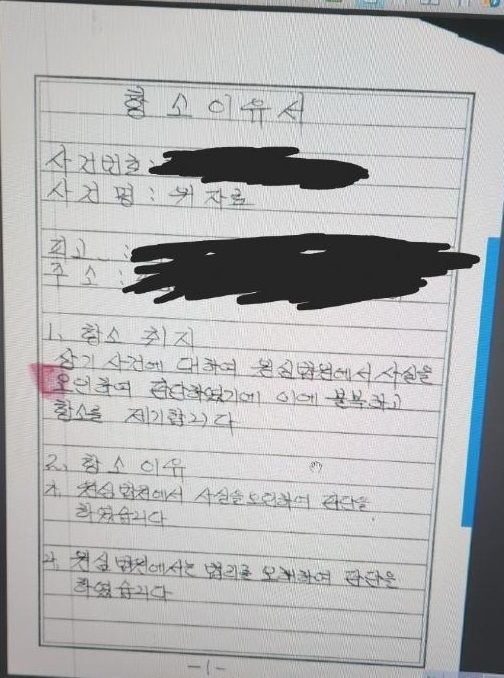 항소이유서
사건번호 :
사건명 : 위자료
피고 :
주소 :
1. 항소 취지
상기 사건에 대하여 원심법원에서 사실을
오인하여 판단하였기에 이에 불복하고
항소를 제기합니다
2. 항소이유
가. 원심법원에서 사실을 오인하여 판단을
하였습니다
나. 원심법원에서는 법리를 오해하여 판단을
하였습니다
-1-